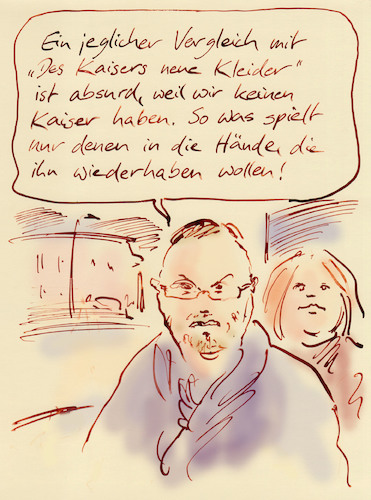 Ein jeglicher Vergleich mit
„Des Kaisers neue Kleider"
ist absurd, weil wir keinen
Kaiser haben. So was spielt
nur denen in die Hände, die
ihn wiederhaben wollen!